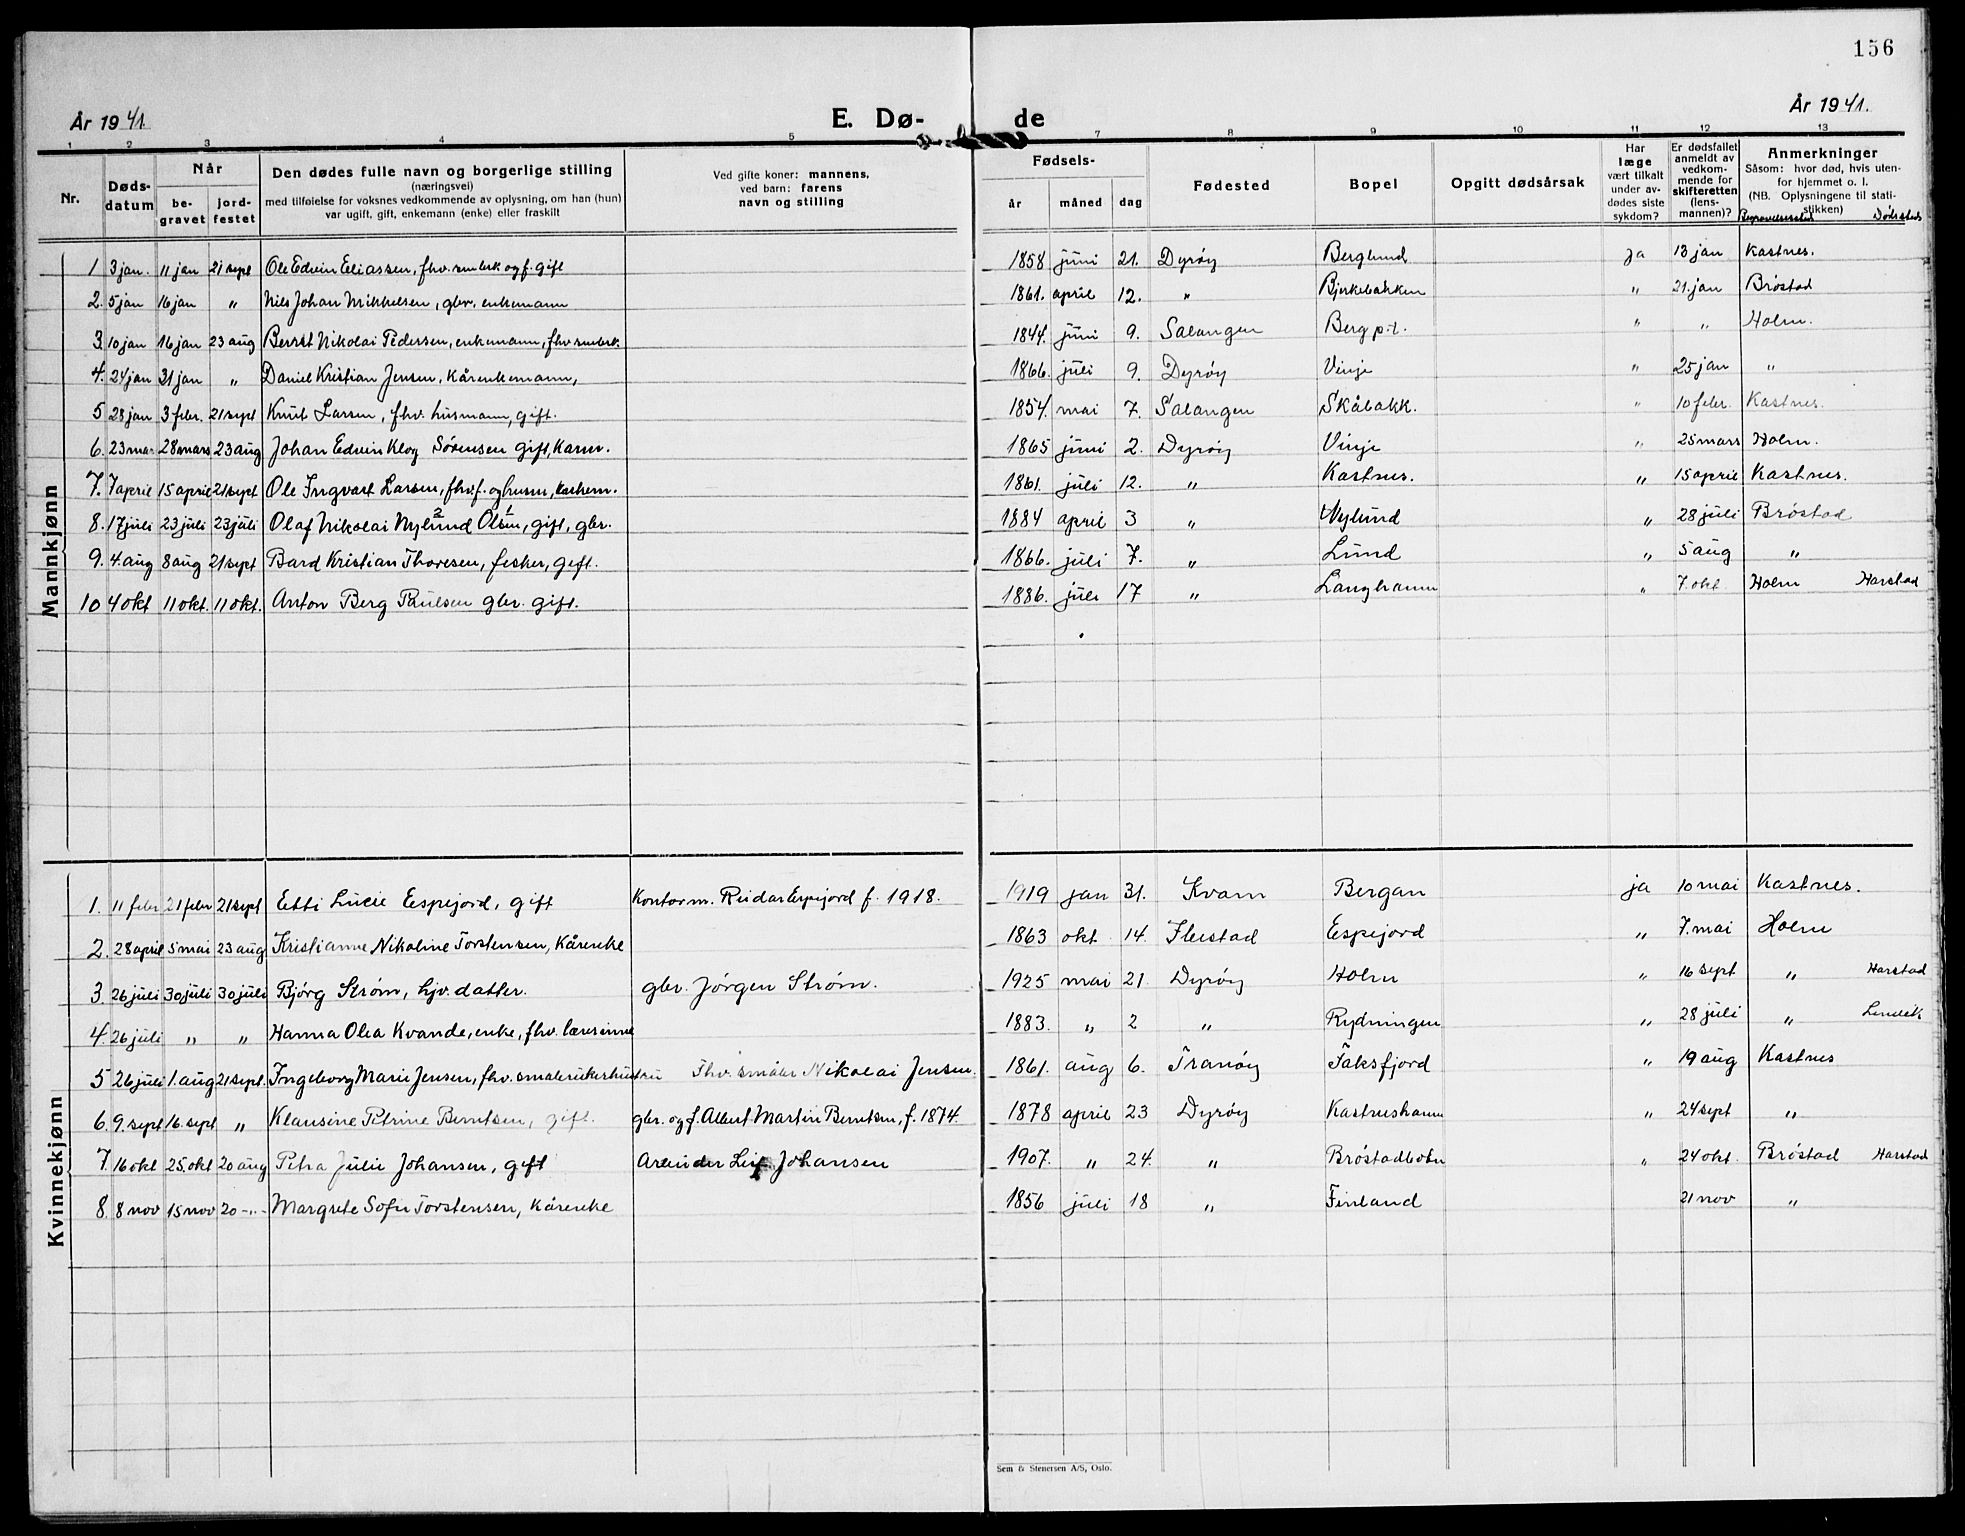 156
År 1941
E. Dø-
de
År 1941.
1 2 3 4 5 7 8 9 10 11 12 13
Nr.
Døds-
datum
Når
be-
gravet
jord-
festet
Den dødes fulle navn og borgerlige stilling
(næringsvei)
med tilføielse for voksnes vedkommende av oplysning, om han (hun)
var ugift, gift, enkemann (enke) eller fraskilt
Ved gifte koner: mannens,
ved barn: farens
navn og stilling
Fødsels-
år
måned
dag
Fødested
Bopel
Opgitt dødsårsak
Har
læge
vært tilkalt
under av-
dødes siste
sykdom?
Er dødsfallet
anmeldt av
vedkom-
mende for
skifteretten
(lens-
mannen)?
Anmerkninger
Såsom: hvor død, hvis uten-
for hjemmet o. l.
(NB. Oplysningene til stati-
stikken)
Begravelsessted Dødssted
Mannkjønn
1 3 jan. 11 jan 21 sept Ole Edvin Eliassen, fhv. småbrk og f. gift 1858 juni 21. Dyrøy Berglund ja 13 jan Kastnes.
2. 5 jan 16 jan " Nils Johan Mikkelsen, gbr. enkemann 1861. april 12. " Bjerkebakken " 21. jan Brøstad
3. 10 jan 16 jan 23 aug Nikolai Pedersen, enkemann, fhv småbrk. 1844. juni 9. Salangen Berg p.t. " " Holm.
4. 24 jan 31 jan " Daniel Kristian Jensen, Kårenkemann, 1866. juli 9. Dyrøy Vinje " 25 jan "
5 28 jan 3 febr. 21 sept Knut Larsen, fhv. husmann, gift. 1854. mai 7. Salangen Skåbakk. " 10 febr. Kastnes.
6. 23 mar 28 mars 23 aug Johan Edvin Klog Sørensen gift, Karm. 1865 juni 2. Dyrøy Vinje " 25 mars Holm.
7. 7 april 15 april 21 sept Ole Ingvart Larsen, fhv. f. og husm, enkem. 1861. juli 12. " Kastnes. " 15 april Kastnes.
8. 17 juli 23 juli 23 juli Olaf Nikolai Nylund 2 Olsen 1, gift, gbr. 1884 april 3 " Nylund " 28 juli Brøstad
9. 4. aug 8 aug 21 sept Bard Kristian Thoresen, fisker, gift. 1866. juli 7. " Lund " 5 aug "
10 4 okt 11 okt. 11 okt. Anton Berg Paulsen gbr. gift. 1886. juli 17 " Langhamn " 7. okt Holm Harstad
Kvinnekjønn
1. 11 febr 21 febr 21 sept Etti Lucie Espejord, gift Kontorm. Reidar Espejord f. 1918. 1919 jan 31. Kvam Bergan ja 10 mai Kastnes.
2. 28 april 5 mai 23 aug Kristianne Nikoline Torstensen, Kårenke 1863 okt 14. Ibestad Espejord " 7. mai Holm
3. 26 juli 30 juli 30 juli Bjørg Strøm, hjv. datter. gbr. Jørgen Strøm. 1925 mai 21. Dyrøy Holm " 16 sept " Harstad
4. 26 juli " " Hanna Olea Kvande, enke, fhv. lærerinne 1883. " 2 " Rydningen " 28 juli "
5 26 juli 1. aug 21 sept. Ingeborg Marie Jensen, fhv. småbrukerhustru Fhv. småbr Nikolai Jensen. 1861. aug 6. Tranøy Faksfjord " 19 aug Kastnes
6. 9. sept 16. sept " Klausine Petrine Berntsen, gift. gbr. og f. Albert Martin Berntsen, f. 1874. 1878 april 23 Dyrøy Kastneshamn " 24 sept "
7. 16 okt 25. okt 20 aug Petra Julie Johansen, gift Arbeider Leif Johansen 1907. " 24. " Brøstadbotn " 24 okt. Brøstad Harstad
8. 8 nov 15 nov 20 -"- Margrete Sofie Torstensen, Kårenke 1856 juli 18 " Finland 21 nov "
Sem & Stenersen A/S, Oslo.